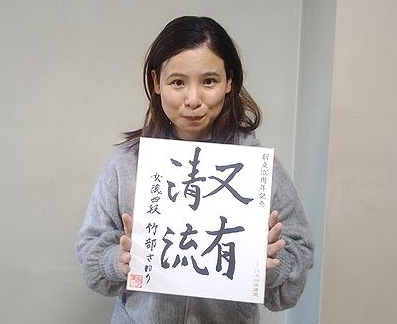 創立100周年記念
又有
清流
女流四段 竹部さゆり